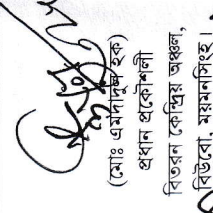 (মোঃ এমদাদুল হক)
প্রধান প্রকৌশলী
বিতরন কেন্দ্রিয় অঞ্চল,
বিউবো, ময়মনসিংহ।